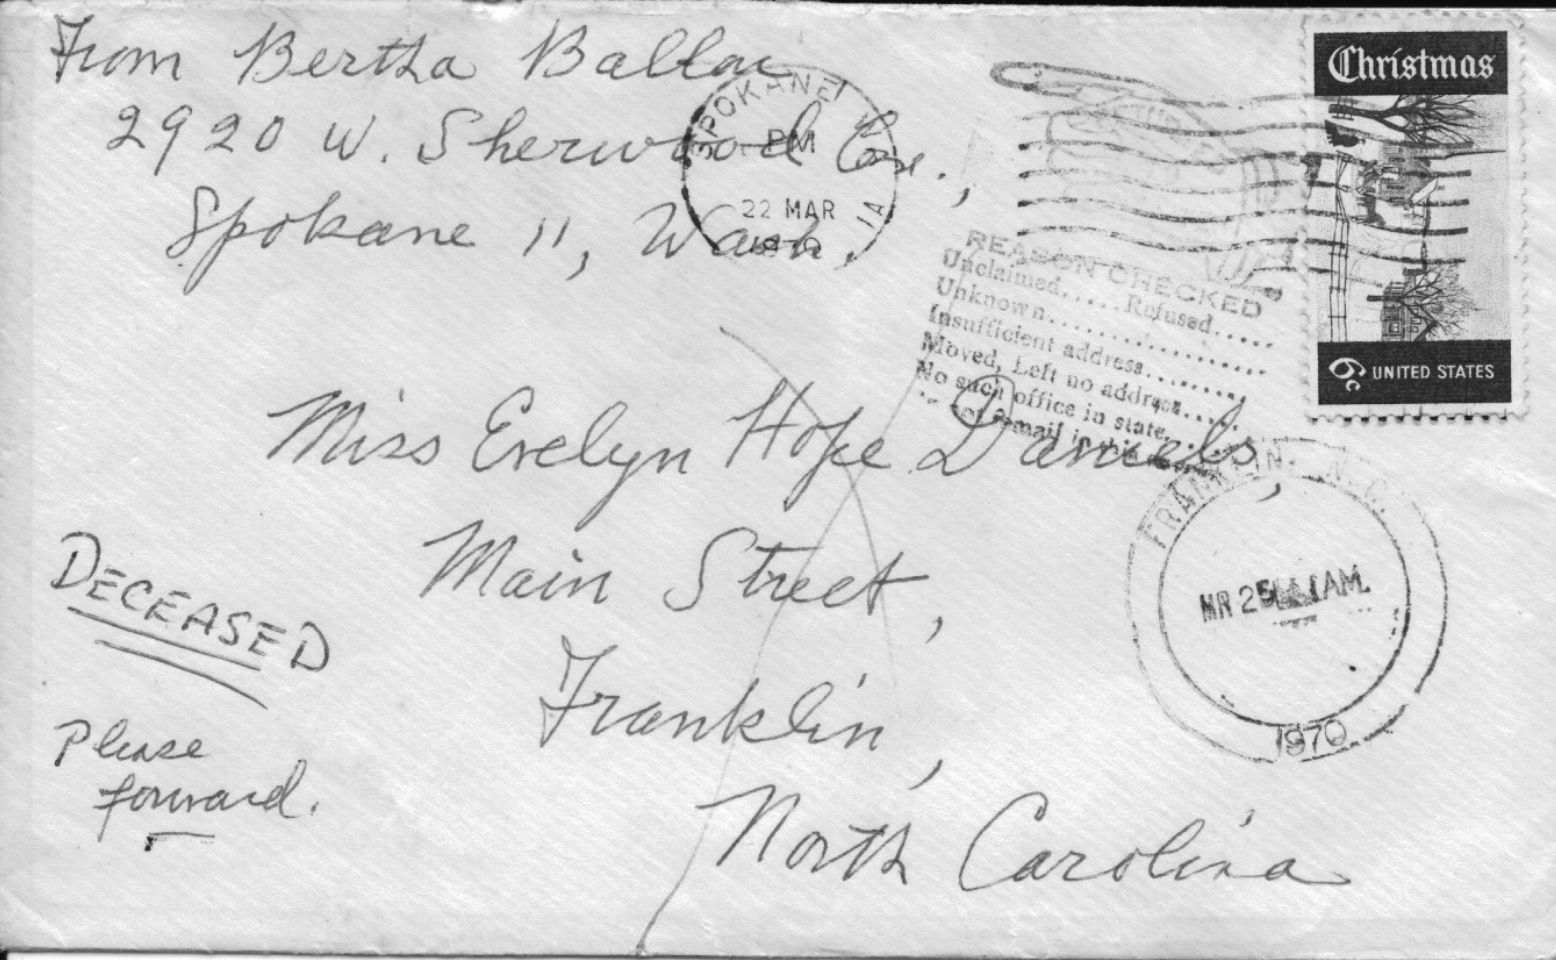 From Bertha Ballou
2920 W. Sherwood Ave.,
Spokane 11, Wash.
SPOKANE, WA
PM
22 MAR
1970
Christmas
6c UNITED STATES
REASON CHECKED
Unclaimed..... Refused.....
Unknown....................
Insufficient address.........
Moved, Left no address.....
No such office in state.
mail in this
Miss Evelyn Hope Daniels,
Main Street,
Franklin,
North Carolina
DECEASED
Please
forward.
FRANKLIN, N.C.
MR 25 AM.
1970